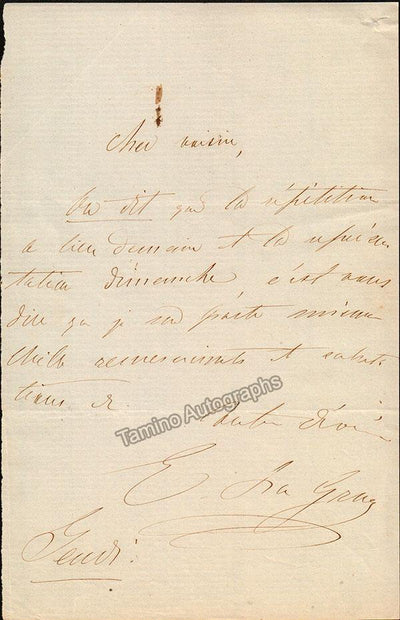 Cher voisin,
On dit que la répétition
a lieu demain et la représen
tation dimanche, c'est vous
dire que je me porte mieux
Mille remerciments et saluta
tions de
Tamino Autographs
E. La Grua
Jeudi.